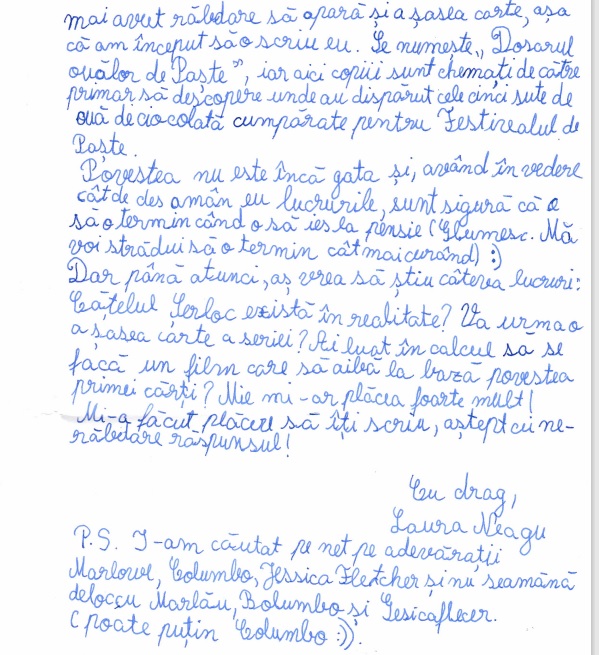 mai avut răbdare să apară și a șasea carte, așa
că am început să o scriu eu. Se numește „Dosarul
ouălor de Paște”, iar aici copiii sunt chemați de către
primar să descopere unde au dispărut cele cinci sute de
ouă de ciocolată cumpărate pentru Festivalul de
Paște.
Povestea nu este încă gata și, având în vedere
cât de des amân eu lucrurile, sunt sigură că o
să o termin când o să ies la pensie (Glumesc. Mă
voi strădui să o termin cât mai curând) :)
Dar până atunci, aș vrea să știu câteva lucruri:
Cățelul Șerloc există în realitate? Va urma o
a șasea carte a seriei? Ai luat în calcul să se
facă un film care să aibă la bază povestea
primei cărți? Mie mi-ar plăcea foarte mult!
Mi-a făcut plăcere să îți scriu, aștept cu ne-
răbdare răspunsul!
Cu drag,
Laura Neagu
P.S. I-am căutat pe net pe adevărații
Marlowe, Columbo, Jessica Fletcher și nu seamănă
deloc cu Marlău, Bolumbo și Gesicaflecer.
(poate puțin Columbo :)).